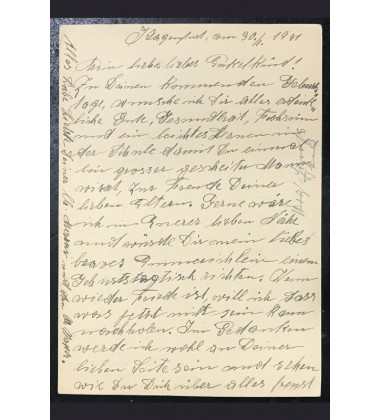 Klagenfurt, am 30/1. 1941
Mein liebes, liebes Enkelkind!
Zu Deinen kommenden Geburts-
tage, wünsche ich Dir alles erdenk-
liche Gute, Gesundheit, Frohsinn
und ein leichtes Lernen in
der Schule damit Du einmal
ein grosser gescheiter Mann
wirst, zur Freude Deiner
lieben Eltern. Gerne wäre
ich in Euerer lieben Nähe
und würde Dir mein liebes
braves einen
Geburtstagtisch richten. Wenn
wieder Friede ist, will ich dass
was jetzt nicht sein kann
nachholen. Im Gedanken
werde ich wohl an Deiner
lieben Seite sein und sehen
wie Du Dich über alles freust